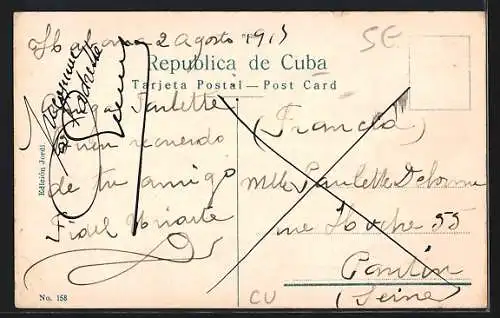 Habana 2 Agosto 1915
5G
Republica de Cuba
Tarjeta Postal — Post Card
Paulette
(Francia)
buen recuerdo
de tu amigo
Fidel Uriarte
Mlle Paulette
rue Hoche 55
Pantin
(Seine)
Edición Jordi.
No. 158
CU